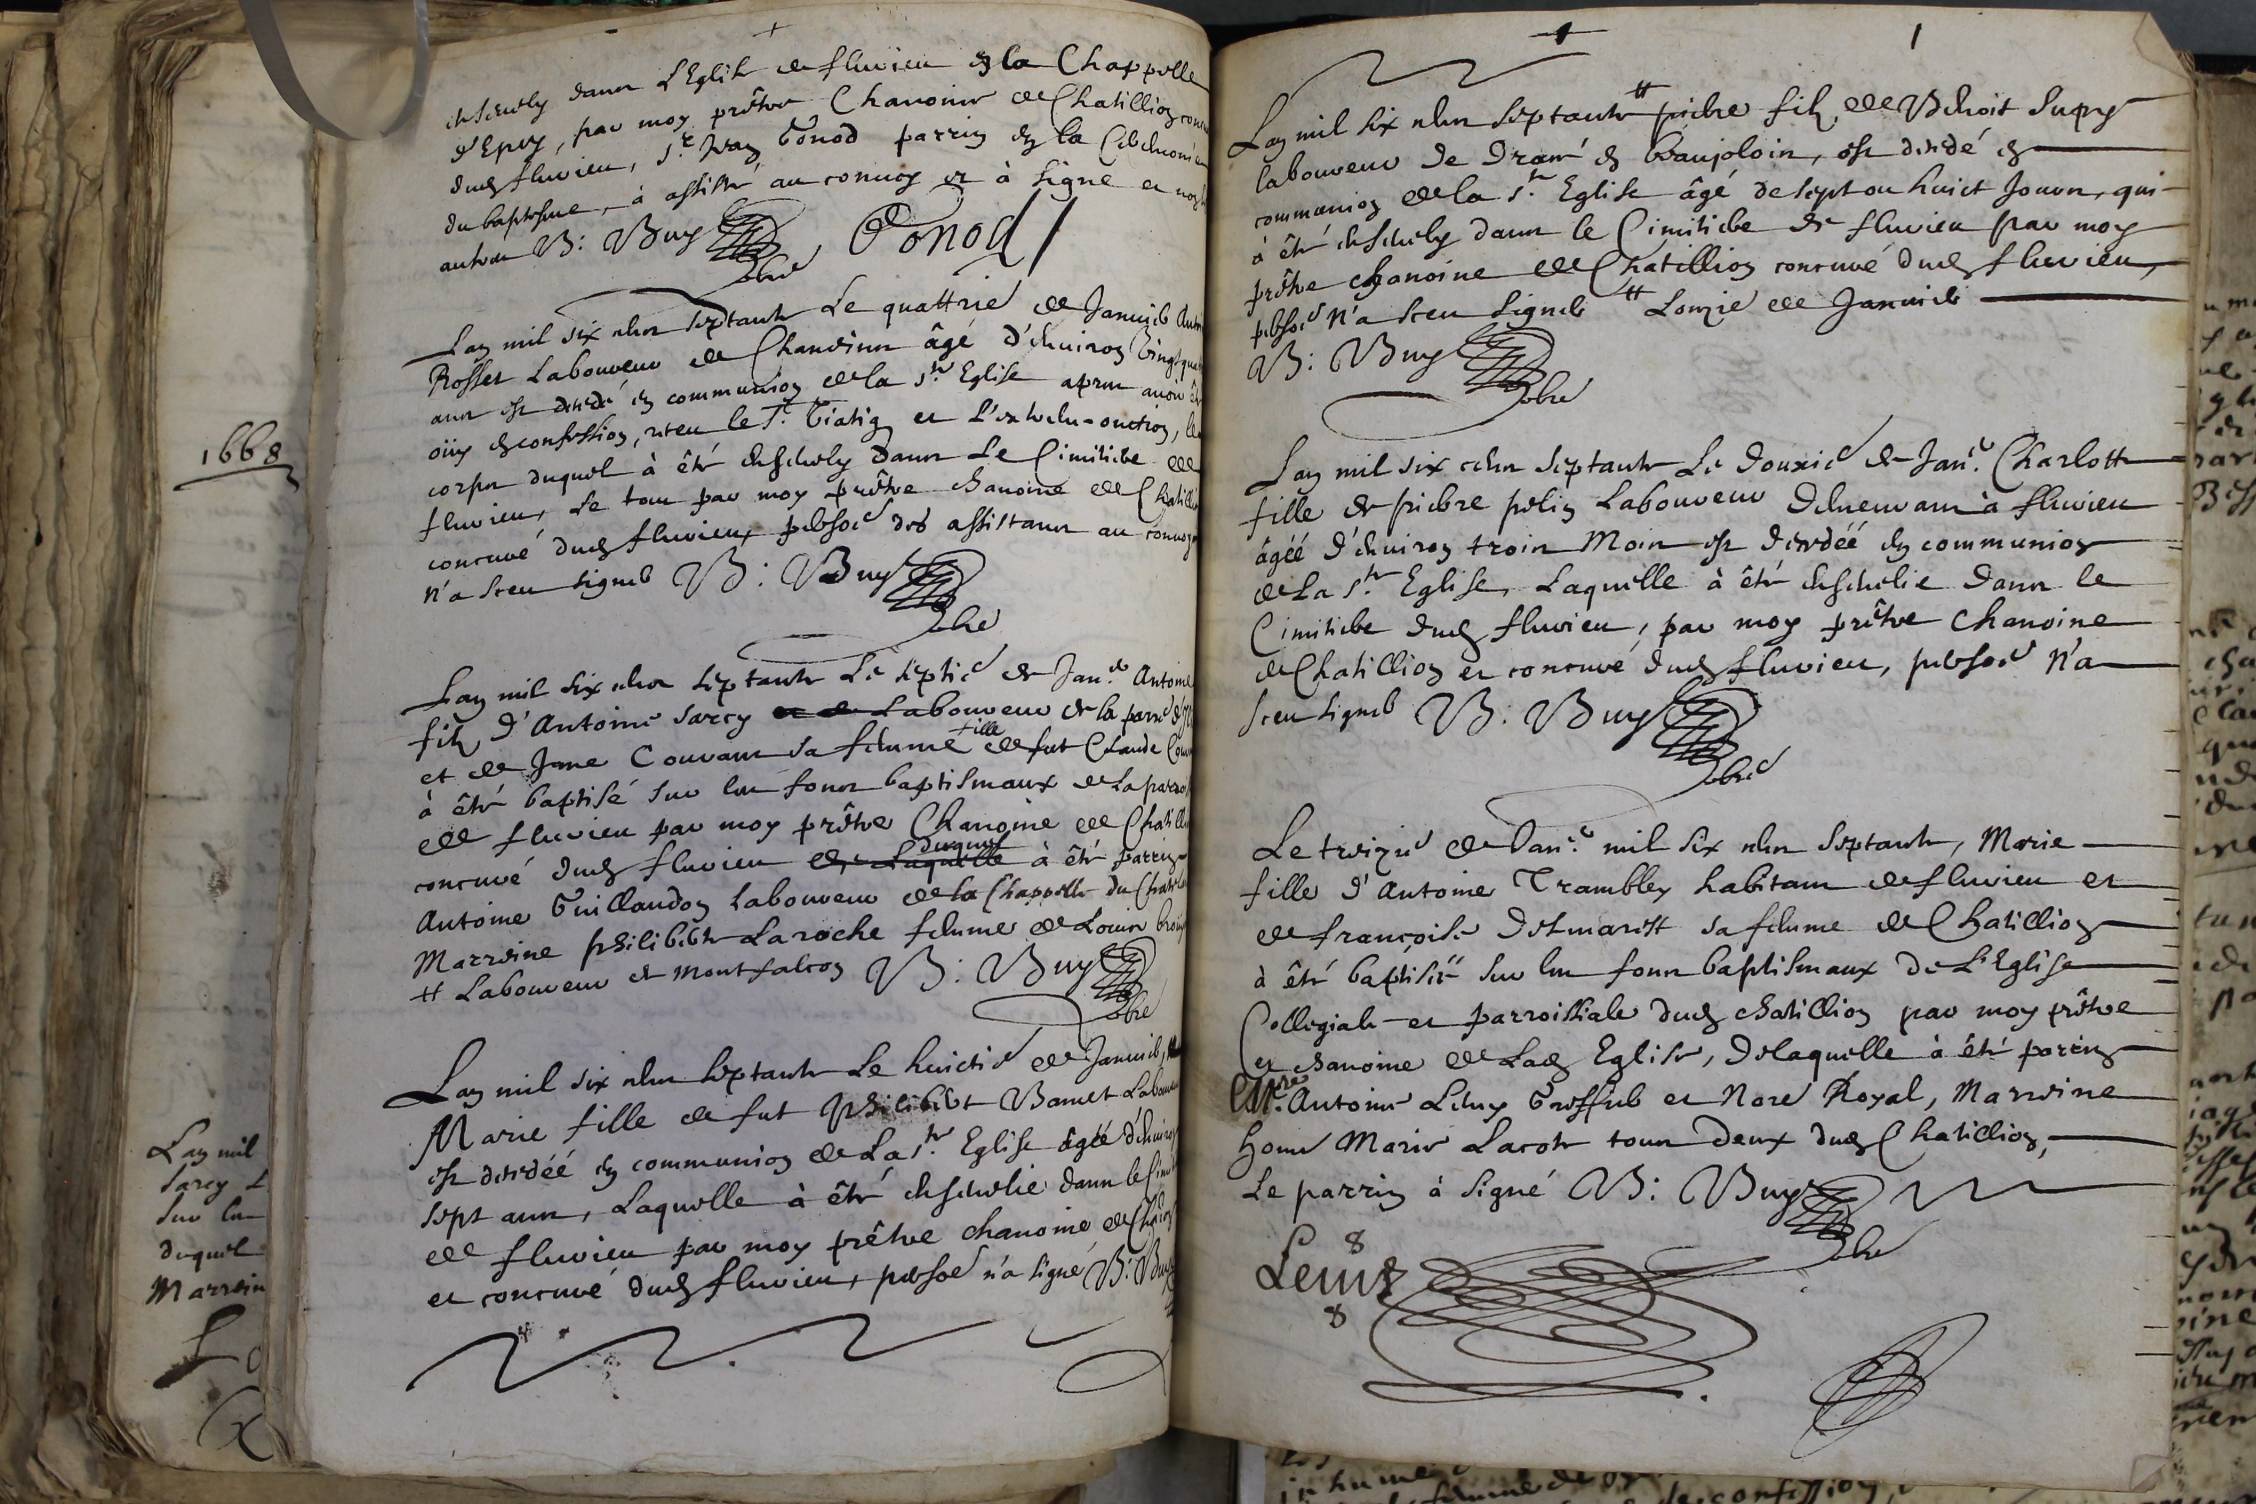 1668
Lan mil
Sarcy L
Sur les
duquel
Marrein
ensevely dans L'Eglise de fluvieu en la Chappelle
d'Epey, par moy prêtre Chanoine de Chatillion concu
dud fluvieu, Sr Jean Gonod parrin en la Ceremonie
du baptesme, à assisté au convoy et à signé et non
autres B: Buy
Gonod
Lan mil six cens septante Le quattrie de Janvier Anto
Rosset Laboureur de Chaveins âgé d'environ Vingt quat
ans est decedé en communion de la Ste Eglise apres avoir ête
ouy en confession, receu le St Viatiq et L'extreme-onction, le
corps duquel à êté ensevely dans Le Cimitiere de
fluvieu, Le tout par moy prêtre chanoine de Chatilli
concuré dud fluvieu, persoe des assistans au convoy
n'a sceu signer B: Buy
Lan mil six cens septante Le septie de Janer Antoine
fils d'Antoine Sarcy Laboureur de la parre d
et de Jane Couvans sa femme fille de fut Claude Couv
à êté baptisé sur les fons baptismaux de La parrois
de fluvieu par moy prêtre Chanoine de Chatilli
concuré dud fluvieu duquel à êté parrin
Antoine Guillaudon Laboureur de la Chappelle du Chatela
Marreine philiberte Laroche femme de Louis broy
# Laboureur de Montfalcon B: Buy
Lan mil six cens septante Le huictie de Janvier,
Marie fille de fut philibert Bamet Laboureu
est decedéé en communion de La Ste Eglise âgéé d'environ
sept ans, Laquelle à êté ensevelie dans le Cimit
de fluvieu par moy prêtre chanoine de Chatillon
et concuré dud fluvieu, persoe n'a signé B: Buy
Lan mil six cens septante # pierre fils de Benoit Supry
laboureur de Dracé en Beaujolois, est decedé en
communion de la Ste Eglise âgé de sept ou huict Jours, qui
à êté ensevely dans le Cimitiere de fluvieu par moy
prêtre chanoine de Chatillion concuré dud fluvieu,
persoe n'a sceu signer # Lonzie de Janvier
B: Buy
Lan mil six cens septante Le douzie de Janer Charlotte
fille de pierre pelin Laboureur demeurans à fluvieu
âgéé d'environ trois Mois est decedéé en communion
de La Ste Eglise, Laquelle à êté ensevelie dans le
Cimitiere dud fluvieu, par moy prêtre Chanoine
de Chatillion et concuré dud fluvieu, persoe n'a
sceu signer B: Buy
Le treizie de Janer mil six cens septante, Marie
fille d'Antoine Trambley habitant de fluvieu et
de françoise Desmarest sa femme de Chatillion
à êté baptiséé sur les fons baptismaux de L'Eglise
Collegiale et parroissiale dud chatillion par moy prêtre
et chanoine de Lad Eglise, de laquelle à êté parrin
Mre Antoine Leuy Greffier et Nore Royal, Marreine
hone Marie Lacote tous deux dud Chatillion,
Le parrin à signé B: Buy
Leuy